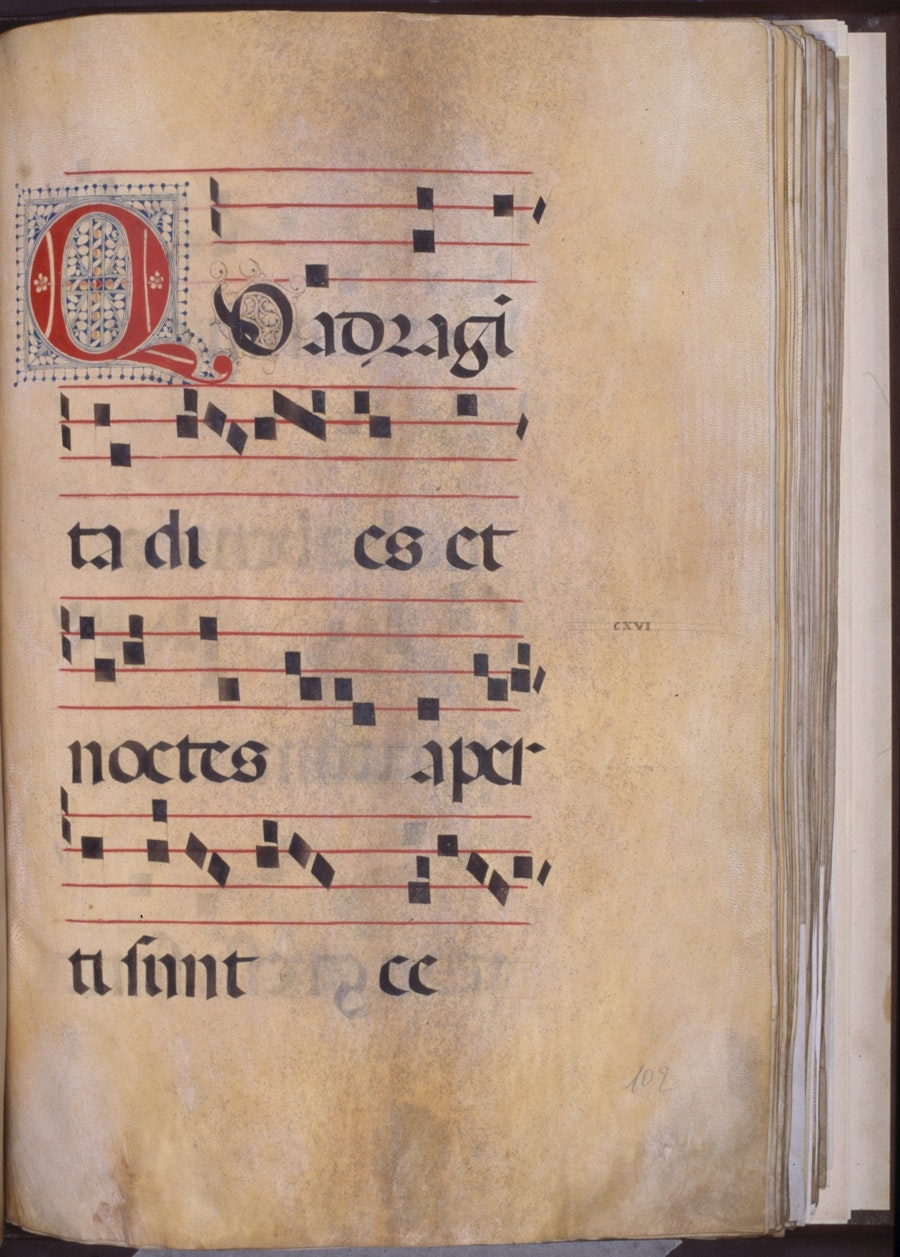 QVadragi
ta di es et
noctes aper
CXVI
ti sunt ce
102